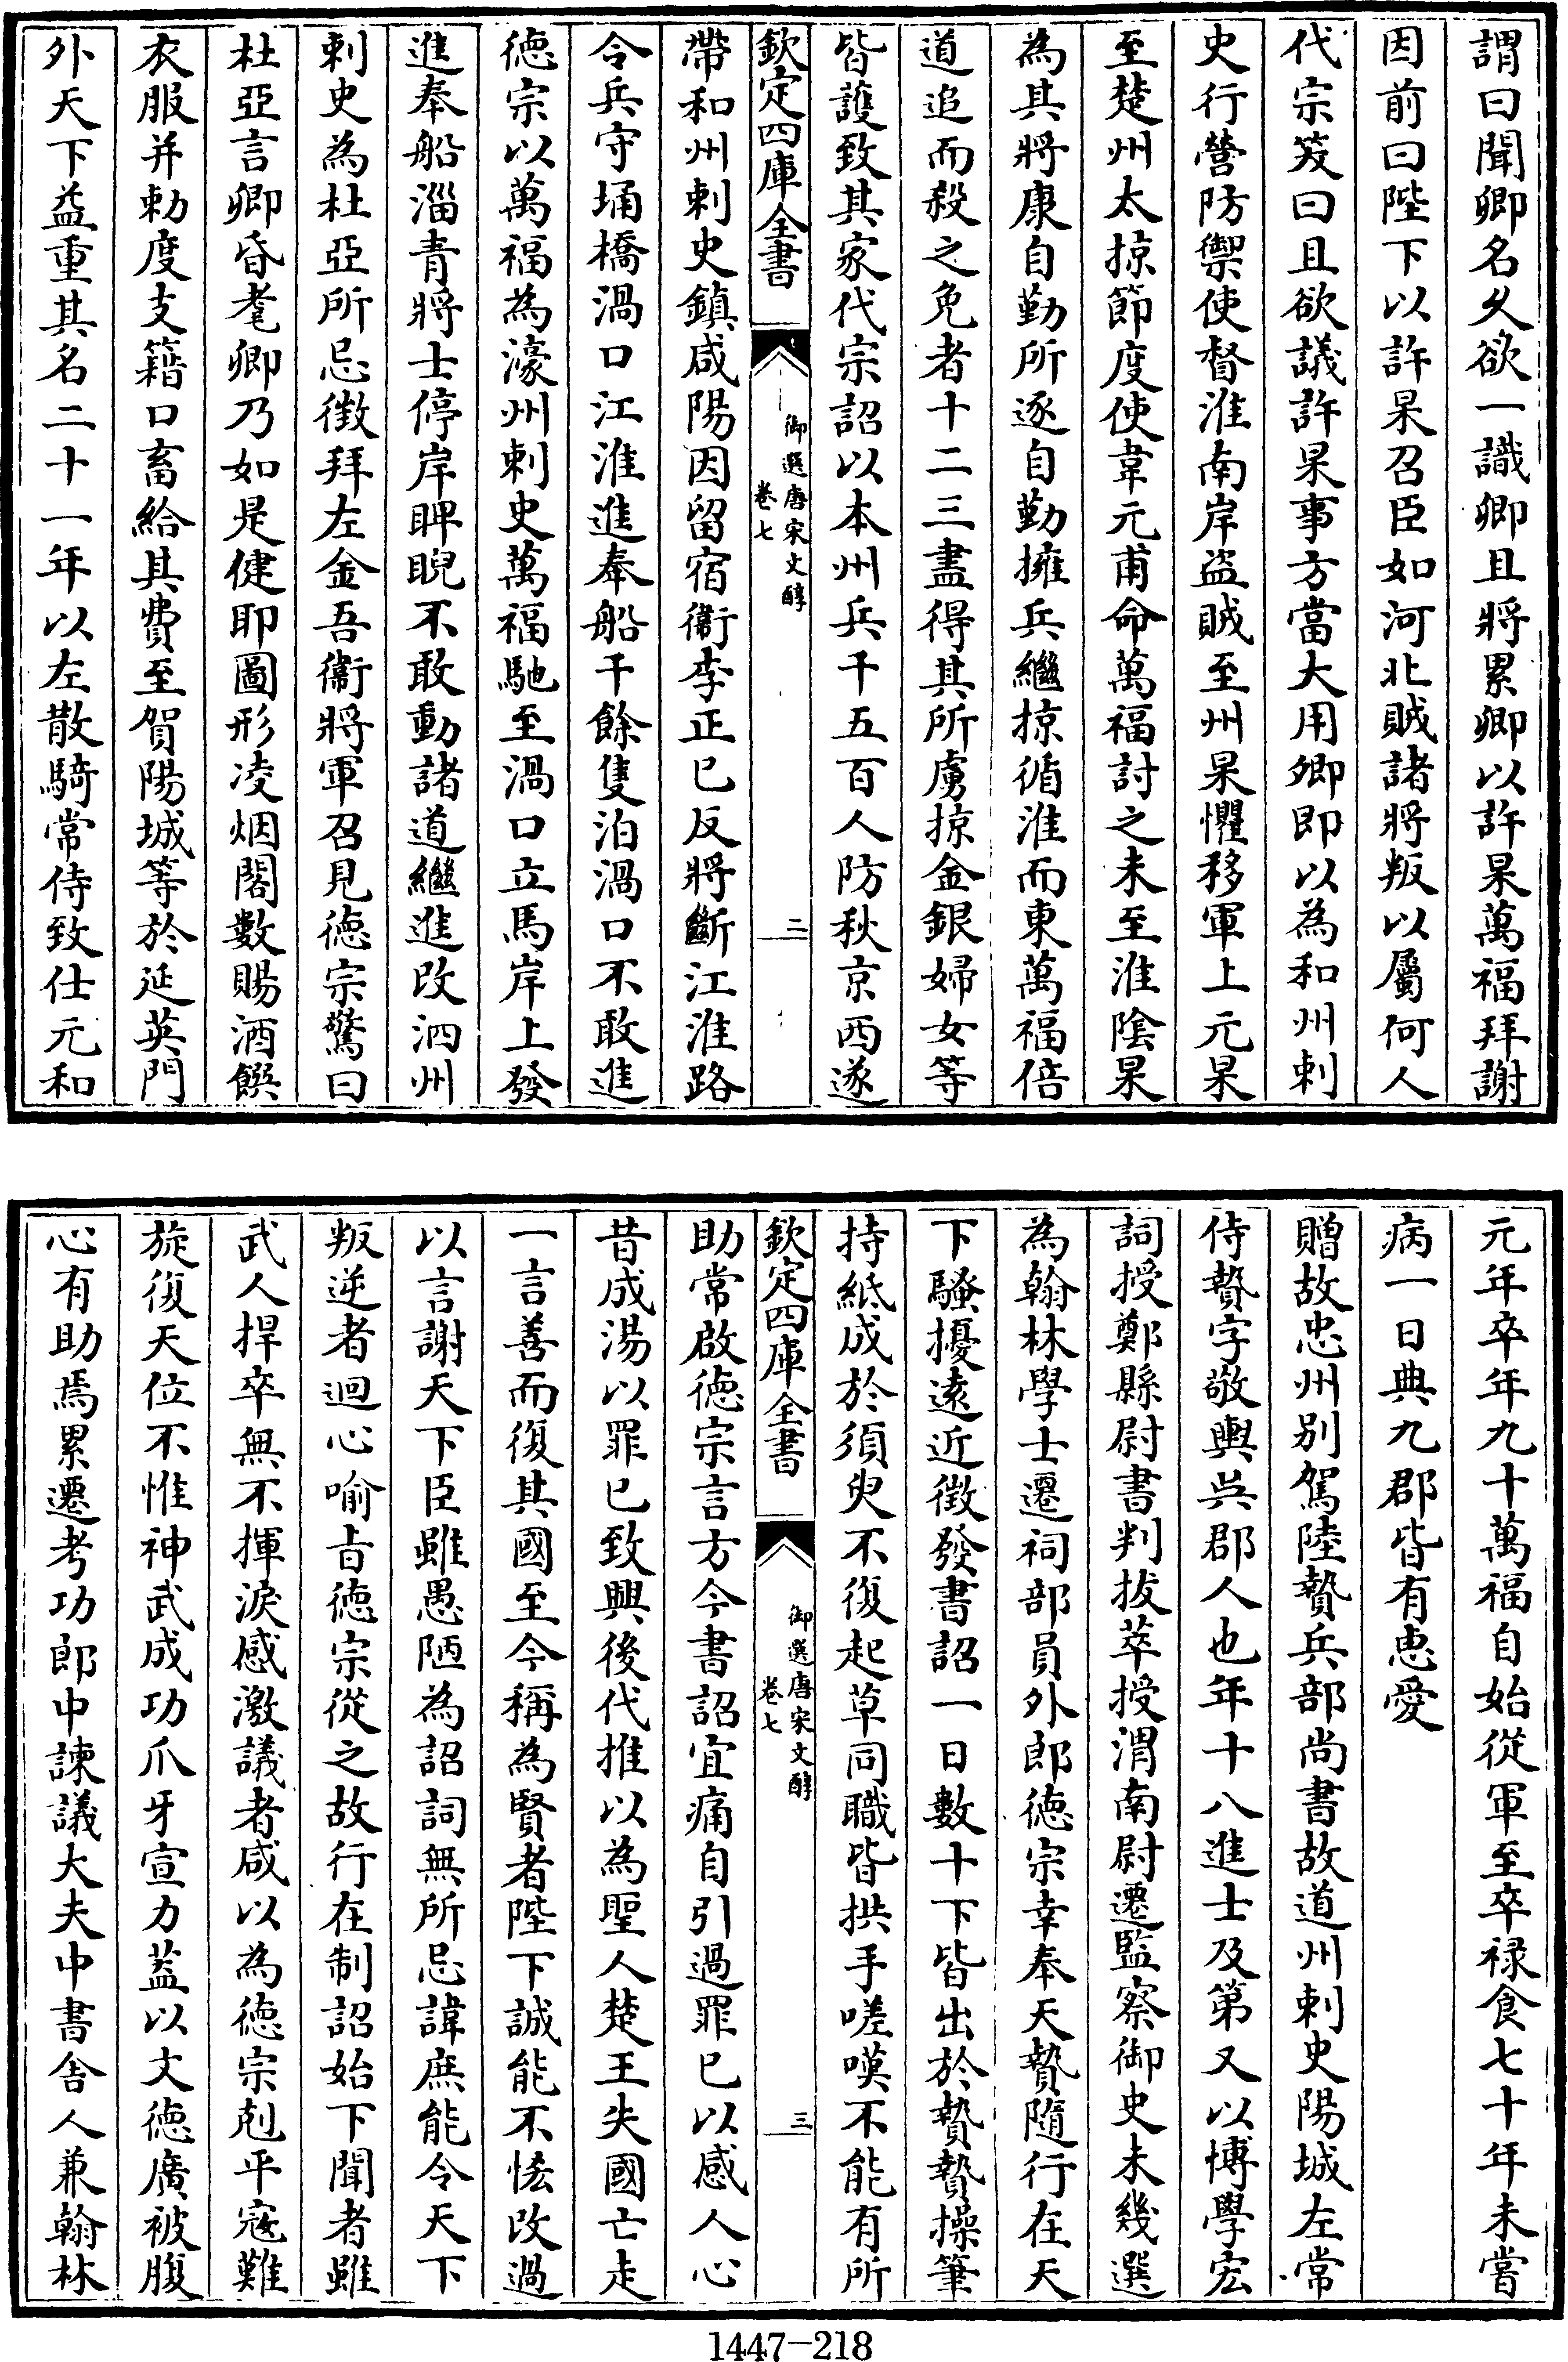 謂曰聞卿名久欲一識卿且將累卿以許杲萬福拜謝
因前曰陛下以許杲召臣如河北賊諸將叛以屬何人
代宗笑曰且欲議許杲事方當大用卿即以為和州刺
史行營防禦使督淮南岸盜賊至州杲懼移軍上元杲
至楚州太掠節度使韋元甫命萬福討之未至淮陰杲
為其將康自勤所逐自勤擁兵繼掠循淮而東萬福倍
道追而殺之免者十二三盡得其所虜掠金銀婦女等
皆護致其家代宗詔以本州兵千五百人防秋京西遂
欽定四庫全書
御選唐宋文醇
卷七
二
帶和州刺史鎮咸陽因留宿衞李正已反將斷江淮路
令兵守埇橋渦口江淮進奉船千餘隻泊渦口不敢進
德宗以萬福為濠州刺史萬福馳至渦口立馬岸上發
進奉船淄青將士停岸睥睨不敢動諸道繼進改泗州
刺史為杜亞所忌徵拜左金吾衞將軍召見德宗驚曰
杜亞言卿昏耄卿乃如是健耶圖形凌烟閣數賜酒饌
衣服并勅度支籍口畜給其費至賀陽城等於延英門
外天下益重其名二十一年以左散騎常侍致仕元和
元年卒年九十萬福自始從軍至卒禄食七十年未嘗
病一日典九郡皆有惠愛
贈故忠州别駕陸贄兵部尚書故道州刺史陽城左常
侍贄字敬輿吳郡人也年十八進士及第又以博學宏
詞授鄭縣尉書判拔萃授渭南尉遷監察御史未幾選
為翰林學士遷祠部員外郎德宗幸奉天贄隨行在天
下騷擾遠近徵發書詔一日數十下皆出於贄贄操筆
持紙成於須臾不復起草同職皆拱手嗟嘆不能有所
欽定四庫全書
御選唐宋文醇
卷七
三
助常啟德宗言方今書詔宜痛自引過罪已以感人心
昔成湯以罪已致興後代推以為聖人楚王失國亡走
一言善而復其國至今稱為賢者陛下誠能不恡改過
以言謝天下臣雖愚陋為詔詞無所忌諱庶能令天下
叛逆者迴心喻㫖德宗從之故行在制詔始下聞者雖
武人捍卒無不揮淚感激議者咸以為德宗剋平寇難
旋復天位不惟神武成功爪牙宣力蓋以文德廣被腹
心有助焉累遷考功郎中諫議大夫中書舍人兼翰林
1447—218